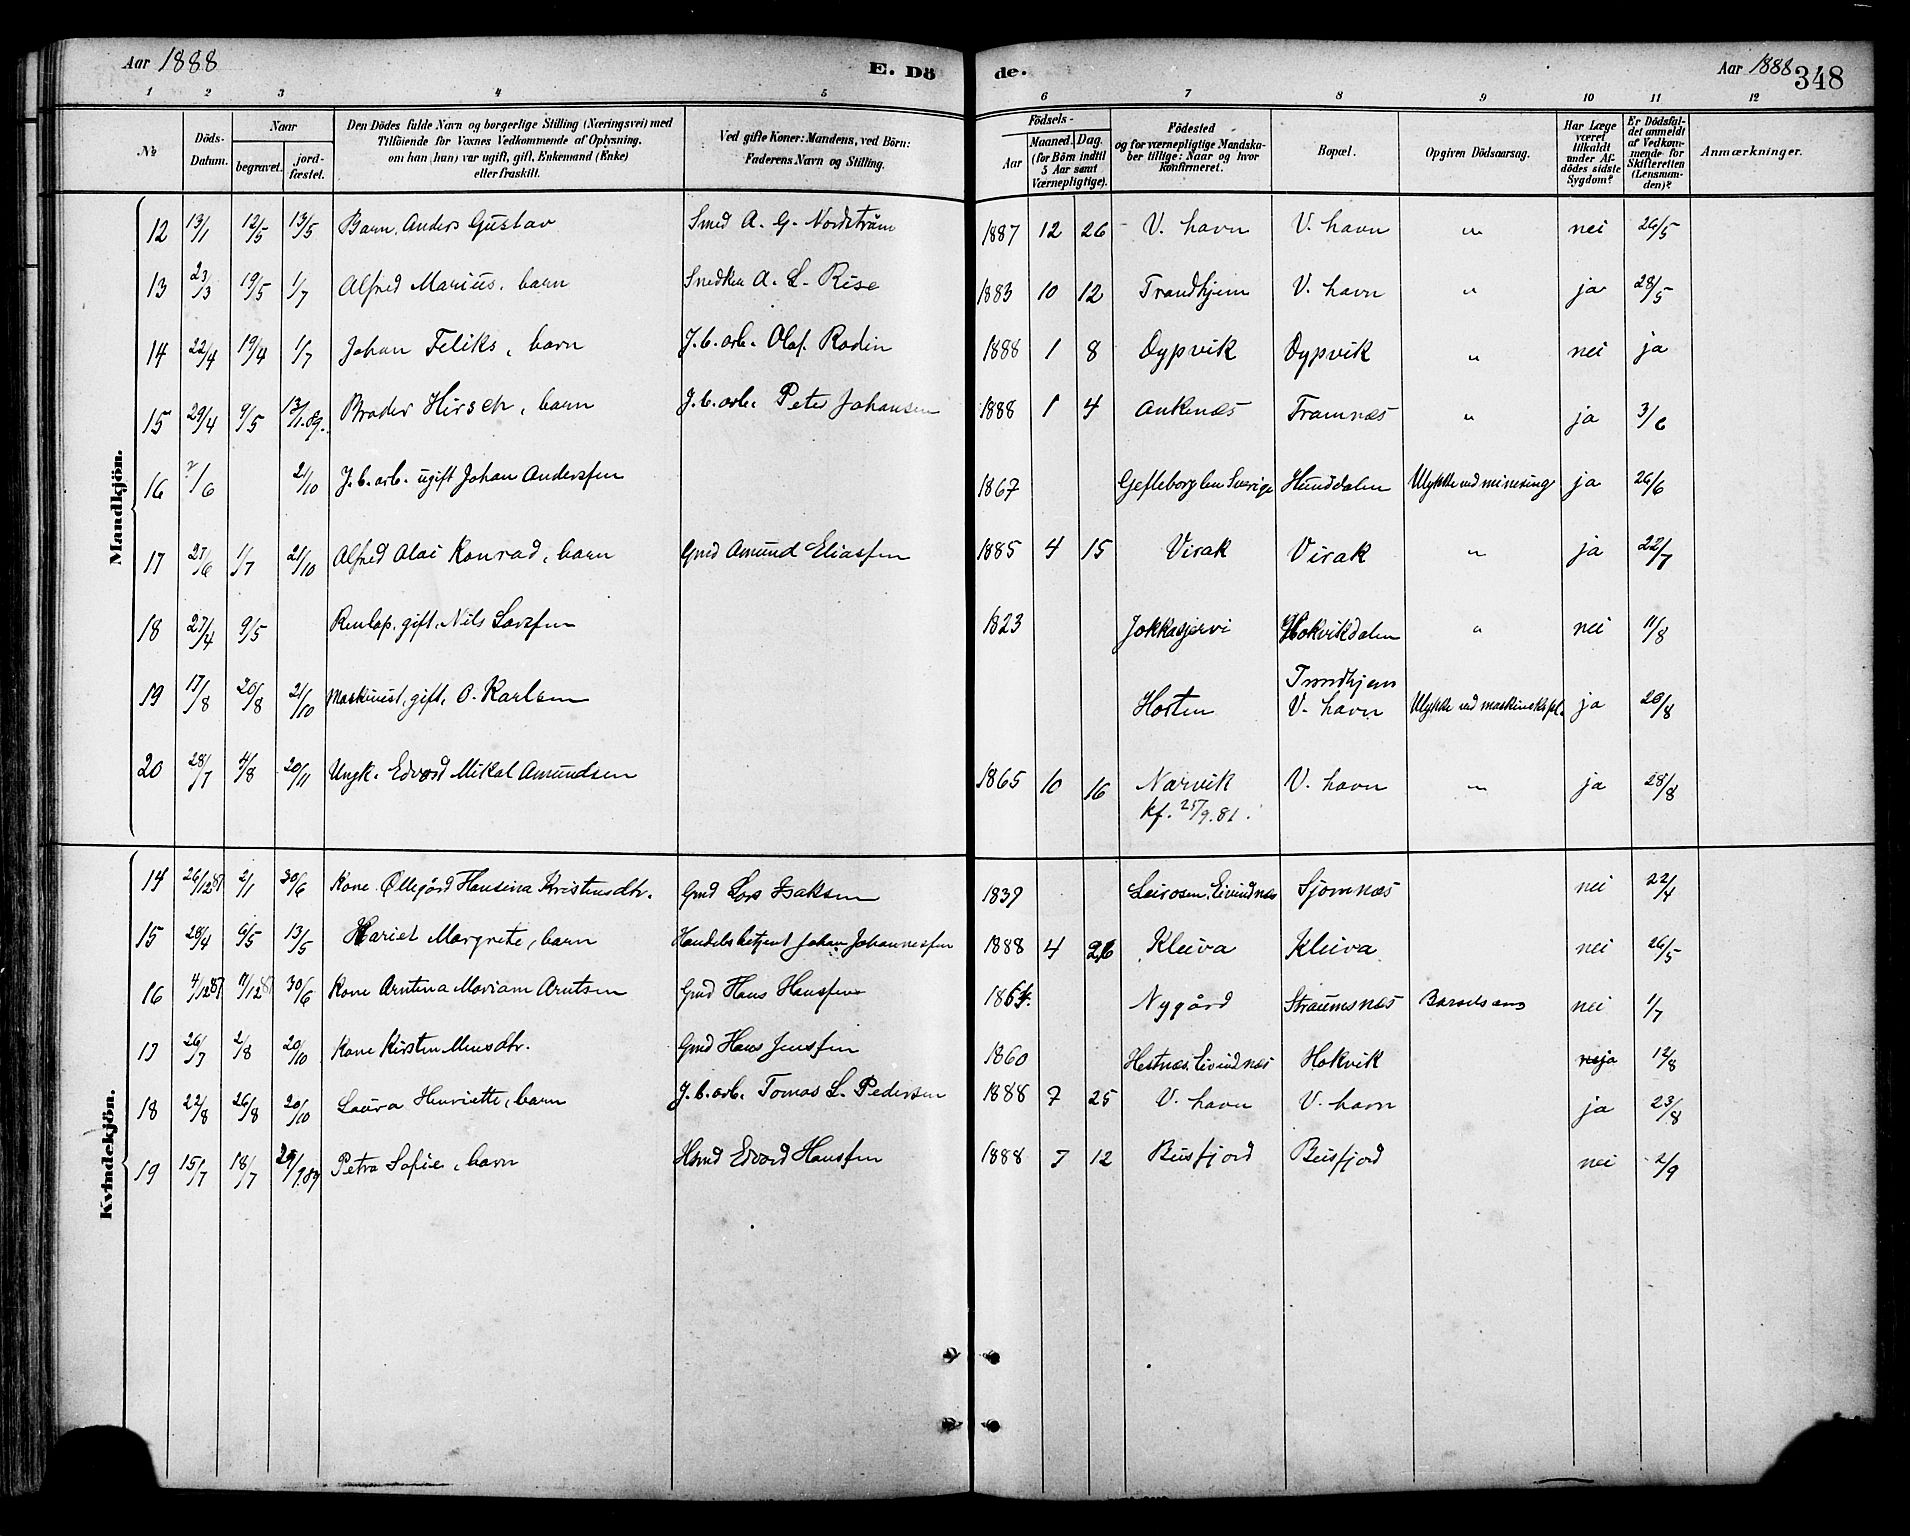 Aar 1888 E. Dö de. Aar 1888 348
1 2 3 4 5 6 7 8 9 10 11 12
№
Döds-Datum.
Naar
begravet.
jord-fæstet.
Den Dödes fulde Navn og borgerlige Stilling (Næringsvei) med
Tilföiende for Voxnes Vedkommende af Oplysning.
om han (hun) var ugift, gift, Enkemand (Enke)
eller fraskilt.
Ved gifte Koner: Mandens, ved Börn:
Faderens Navn og Stilling.
Födsels-
Aar
Maaned. Dag.
(for Börn indtil
5 Aar samt
Værnepligtige).
Födested
og for værnepligtige Mandska-
ber tillige: Naar og hvor
konfirmeret.
Bopæl.
Opgiven Dödsaarsag.
Har Læge
været
tilkaldt
under Af-
dödes sidste
Sygdom?
Er Dödsfal-
det anmeldt
af Vedkom-
mende for
Skifteretten
(Lensman-
den)?
Anmærkninger.
Mandkjön.
12 13/1 12/5 13/5 Barn, Anders Gustav Smed A. G. Nordström 1887 12 26 V. havn V. havn " nei 26/5
13 23/3 19/5 1/7 Alfred Marius, barn Snedker A. L. Rise 1883 10 12 Trondhjem V. havn " ja 28/5
14 22/4 19/4 1/7 Johan Feliks, barn J.b.arb. Olaf Rodin 1888 1 8 Dypvik Dypvik " nei ja
15 29/4 9/5 13/1.89. Broder Hirsch, barn J.b.arb. Peter Johansen 1888 1 4 Ankenæs Framnæs " ja 3/6
16 2/6 21/10 J.b.arb. ugift Johan Andersen 1867 Gefleborg len Sverige Hunddalen Ulykke ved minering ja 26/6
17 27/6 1/7 21/10 Alfred Alai Konrad, barn Gmd Amund Eliassen 1885 4 15 Virak Virak " ja 22/7
18 27/4 9/5 Renlap, gift, Nils Larsen 1823 Jokkasjervi Hokvikdalen " nei 11/8
19 17/8 20/8 21/10 Maskinist, gift, O. Karlsen Horten Trondhjem
V. havn Ulykke ved maskinekspl. ja 20/8
20 28/7 4/8 20/11 Ungk. Edvard Mikal Amundsen 1865 10 16 Narvik V. havn " ja 28/8
kf. 25/9.81.
Kvindekjön.
14 26/12 87 2/1 30/6 Kone Øllegård Hansina Kristensdtr. Gmd Lars Isaksen 1839 Leirosen, Eivindnæs Sjomnæs nei 22/4
15 28/4 6/5 13/5 Hariet Margrete, barn Handelsbetjent Johan Johannessen 1888 4 26 Kleiva Kleiva nei 26/5
16 4/12 87 11/12 87 30/6 Kone Arntina Mariam Arntsen Gmd Hans Hanssen 1864. Nygård Straumsnæs nei 1/7
17 26/7 2/8 20/10 Kone Kirsten Mensdtr. Gmd Hans Jenssen 1860 Hestnæs, Eivindnæs Hokvik ja 12/8
18 22/8 26/8 20/10 Laura Henriette, barn J.b.arb. Tomas L. Pedersen 1888 7 25 V. havn V. havn ja 23/8
19 15/7 18/7 29/9.89 Petra Sofie, barn Hsmd Edvard Hanssen 1888 7 12 Beisfjord Beisfjord nei 2/9